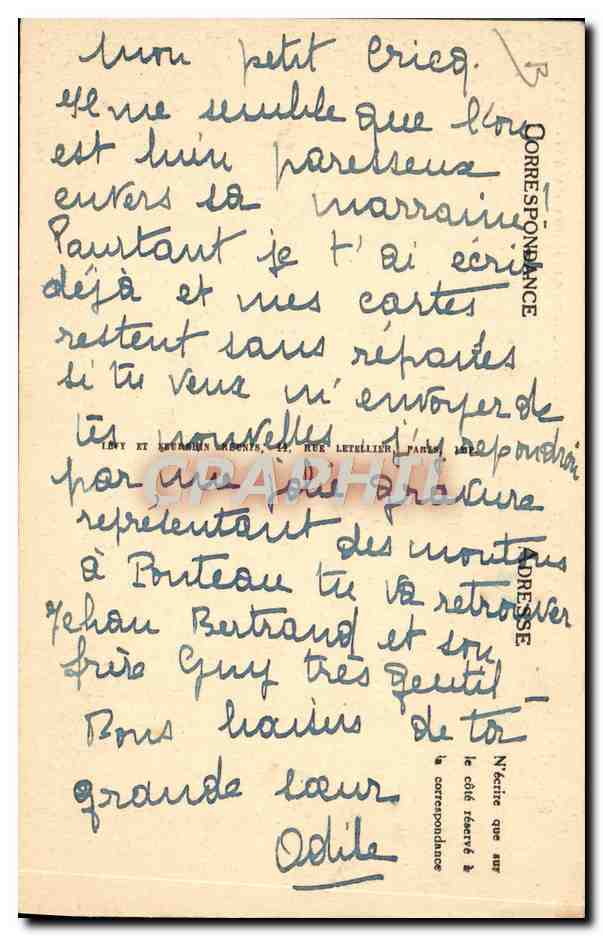 Mon petit Cricq.
Il me semble que l'on
est bien paresseux
envers sa marraine!
Pourtant je t'ai écris
déjà et mes cartes
restent sans réponses
si tu veux m'envoyer de
tes nouvelles j'y repondrai
par une jolie gravure
représentant des moutons
à Ponteau tu va retrouver
Jehan Bertrand et son
frère Guy très gentil –
Bons baisers de ta
grande sœur
Odile
B
CORRESPONDANCE
ADRESSE
N'écrire que sur
le côté réservé à
la correspondance
LÉVY ET NEURDEIN RÉUNIS, 44, RUE LETELLIER, PARIS, IMP.
CPARPHIL